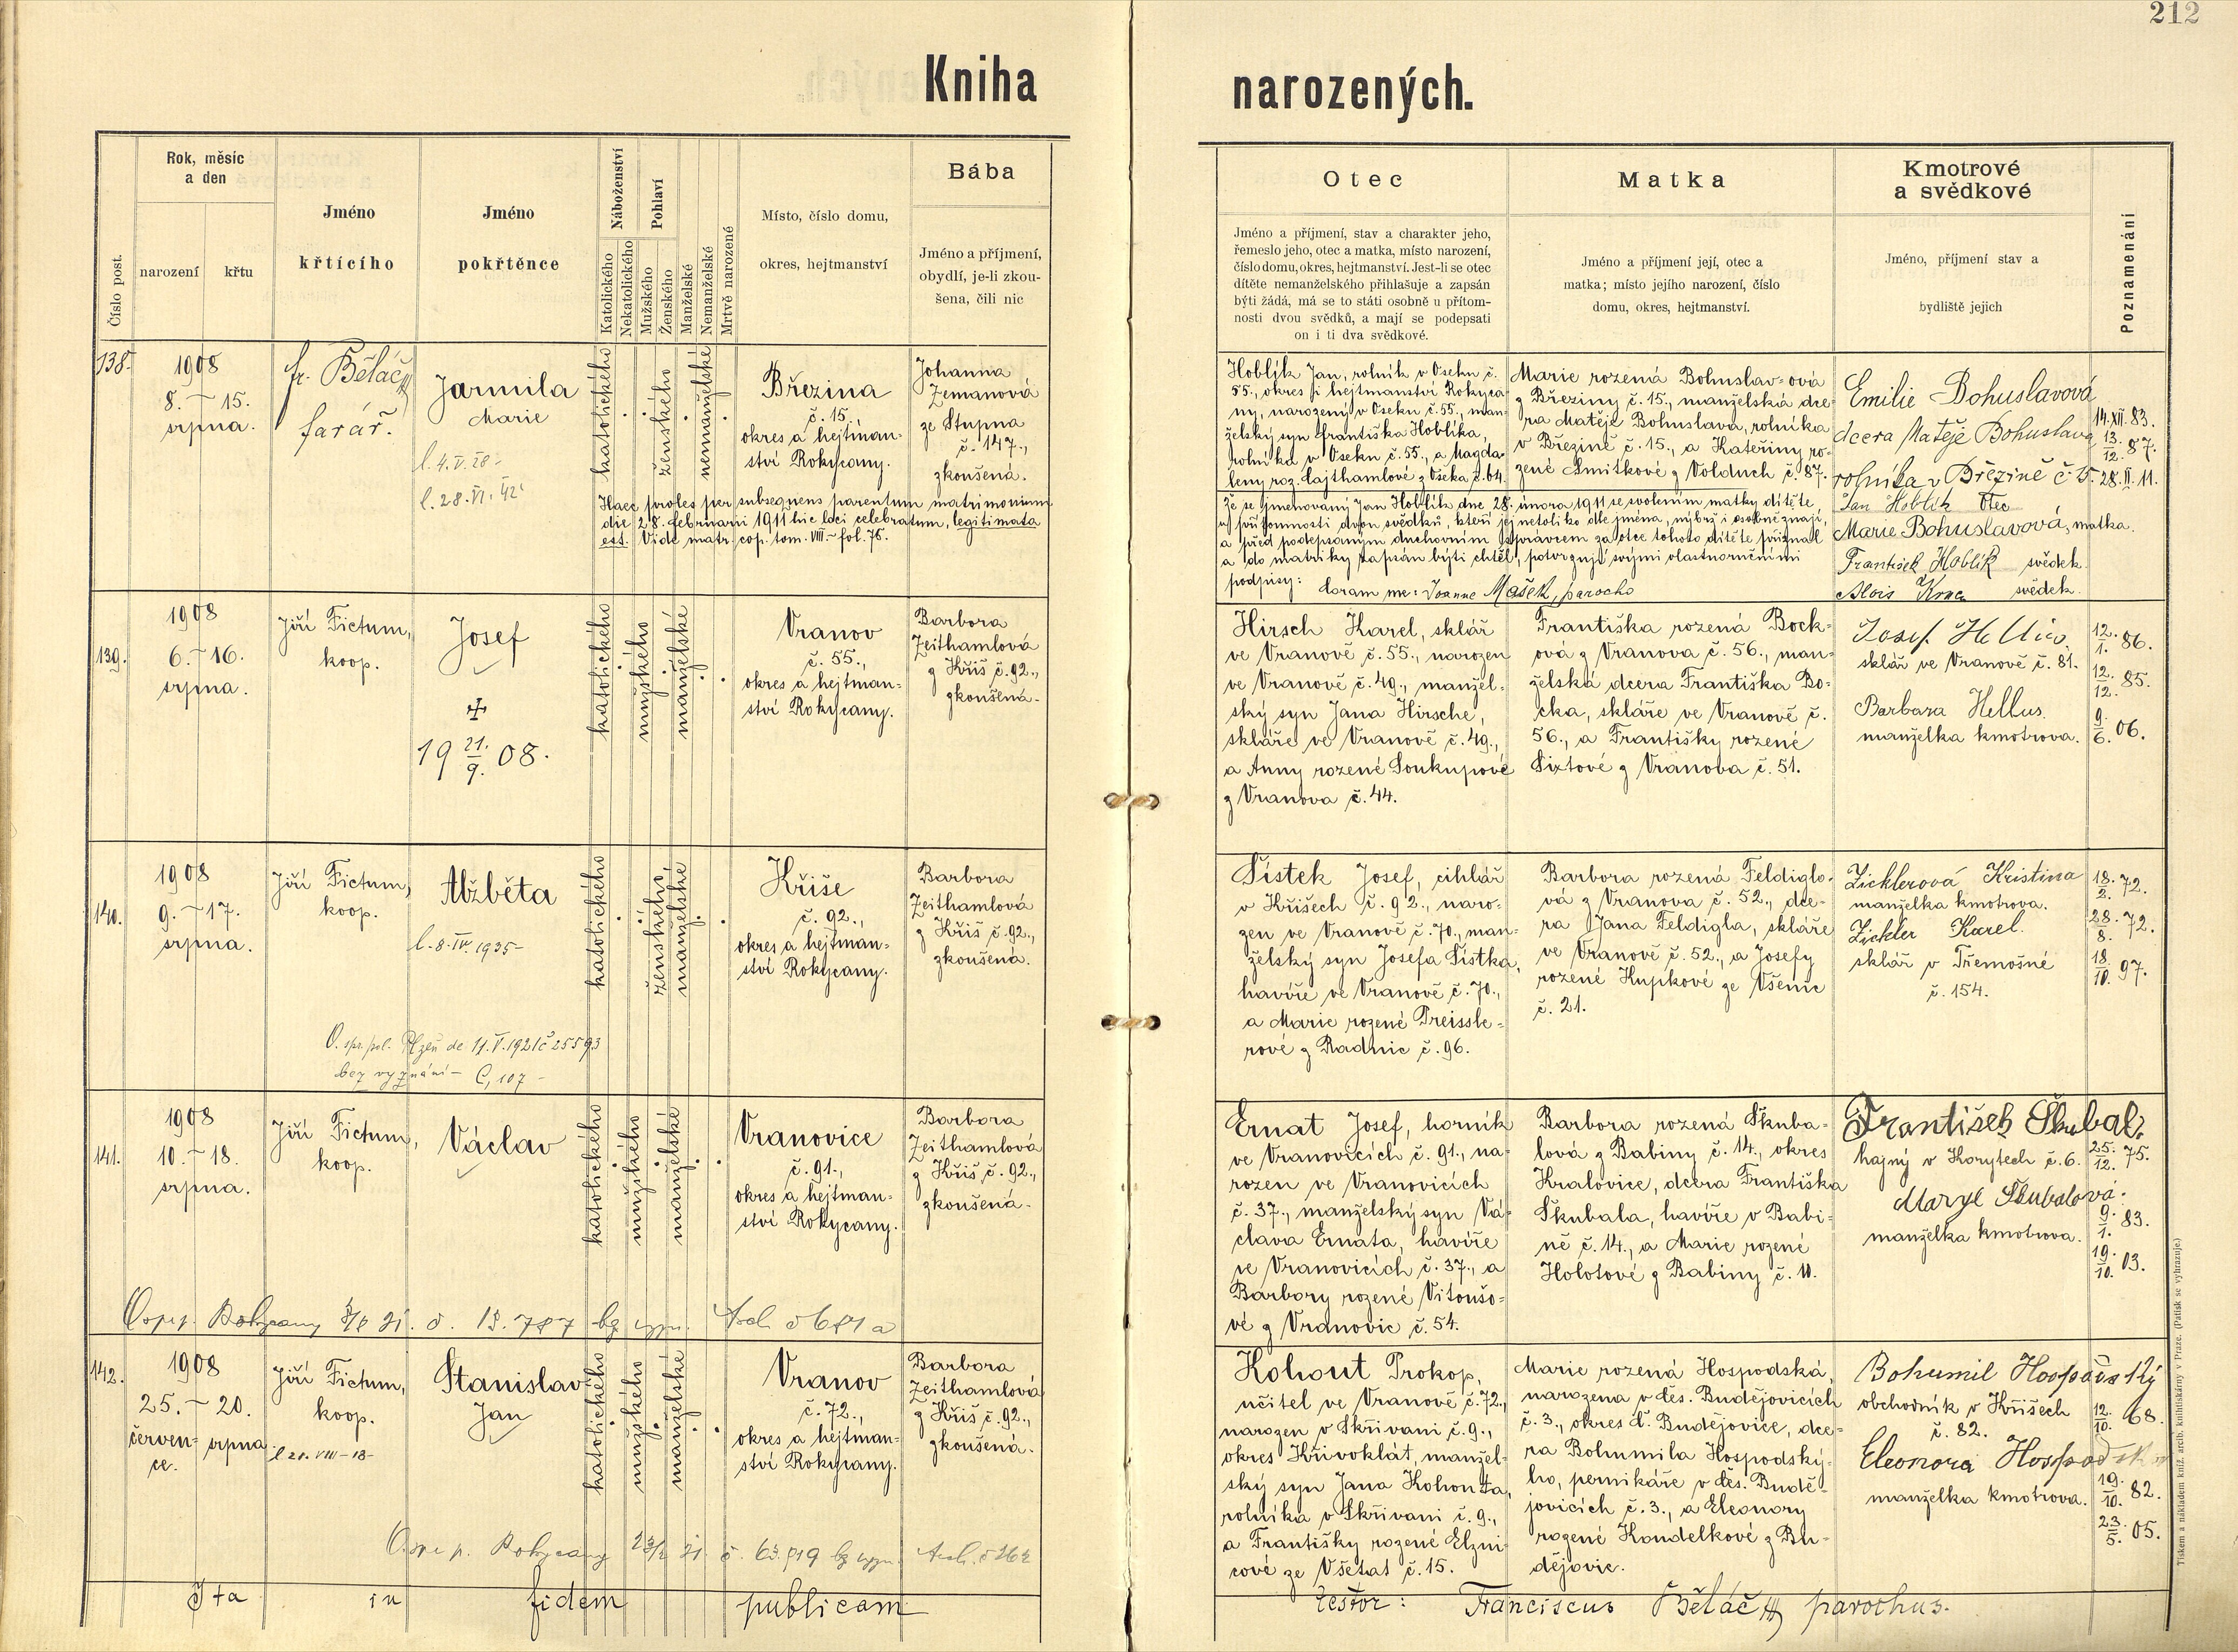 212
Kniha narozených.
Číslo post.
Rok, měsíc
a den
narození
křtu
Jméno
křtícího
Jméno
pokřtěnce
Náboženství
Katolického
Nekatolického
Pohlaví
Mužského
Ženského
Manželské
Nemanželské
Mrtvě narozené
Místo, číslo domu,
okres, hejtmanství
Bába
Jméno a příjmení,
obydlí, je-li zkou-
šena, čili nic
Otec
Jméno a příjmení, stav a charakter jeho,
řemeslo jeho, otec a matka, místo narození,
číslo domu, okres, hejtmanství. Jest-li se otec
dítěte nemanželského přihlašuje a zapsán
býti žádá, má se to státi osobně u přítom-
nosti dvou svědků, a mají se podepsati
on i ti dva svědkové.
Matka
Jméno a příjmení její, otec a
matka; místo jejího narození, číslo
domu, okres, hejtmanství.
Kmotrové
a svědkové
Jméno, příjmení stav a
bydliště jejich
Poznamenání
138.
1908
8. – 15.
srpna.
fr. Běláč
farář.
Jarmila
Marie
l. 4. V. 28 -
l. 28. VI. 42
katolického
ženského
nemanželské
Březina
č. 15.,
okres a hejtman-
ství Rokycany.
Johanna
Zemanová
ze Stupna
č. 147.,
zkoušená.
Haec proles per subsequens parentum matrimonium
die 28. februarii 1911 hic loci celebratum, legitimata
est. Vide matr. cop. tom. VIII – fol. 78.
Hoblík Jan, rolník v Oseku č.
55., okres i hejtmanství Rokyca-
ny, narozený v Oseku č. 55., man-
želský syn Františka Hoblíka,
rolníka v Oseku č. 55., a Magda-
leny roz. Lajthamlové z Oseka č. 64.
Marie rozená Bohuslav-ová
z Březiny č. 15., manželská dce-
ra Matěje Bohuslava, rolníka
v Březině č. 15., a Kateřiny ro-
zené Šmitkové z Volduch č. 87.
Emilie Bohuslavová
dcera Matěje Bohuslava
rolníka v Březině č. 15.
14. XII. 83.
13. 12. 87.
28. II. 11.
Že se jmenovaný Jan Hoblík dne 28. února 1911 se svolením matky dítěte,
u přítomnosti dvou svědků, kteří jej netoliko dle jména, nýbrž i osobně znají,
a před podepsaným duchovním správcem za otce tohoto dítěte přiznal
a do matriky zapsán býti chtěl, potvrzují svými vlastnoručními
podpisy: Coram me: Joanne Mašek, parocho
Jan Hoblík Otec
Marie Bohuslavová, matka.
František Hoblík svědek
Alois svědek.
139.
1908
6. – 16.
srpna.
Jiří Fictum,
koop.
Josef
19 21. 9. 08.
katolického
mužského
manželské
Vranov
č. 55.,
okres a hejtman-
ství Rokycany.
Barbora
Zeithamlová
z Kříš č. 92.,
zkoušená.
Hirsch Karel, sklář
ve Vranově č. 55., narozen
ve Vranově č. 49., manžel-
ský syn Jana Hirsche,
skláře ve Vranově č. 49.,
a Anny rozené Soukupové
z Vranova č. 44.
Františka rozená Bock-
ová z Vranova č. 56., man-
želská dcera Františka Bo-
cka, skláře ve Vranově č.
56., a Františky rozené
Sixtové z Vranova č. 51.
Josef Hellus
sklář ve Vranově č. 81.
Barbara Hellus.
manželka kmotrova.
12. 1. 86.
12. 12. 85.
9. 6. 06.
140.
1908
9. – 17.
srpna.
Jiří Fictum,
koop.
Alžběta
l. 8. IV. 1935
katolického
ženského
manželské
Kříše
č. 92.,
okres a hejtman-
ství Rokycany.
Barbora
Zeithamlová
z Kříš č. 92.,
zkoušená.
O. spr. pol. Plzeň de 11. V. 1921 č 25593
bez vyznání – C, 107 –
Šístek Josef, cihlář
v Kříšech č. 92., naro-
zen ve Vranově č. 70., man-
želský syn Josefa Šístka,
havíře ve Vranově č. 70.,
a Marie rozené Preissle-
rové z Radnic č. 96.
Barbora rozená Feldiglo-
vá z Vranova č. 52., dce-
ra Jana Feldigla, skláře
ve Vranově č. 52., a Josefy
rozené Hupkové ze Všenic
č. 21.
Zicklerová Kristina
manželka kmotrova.
Zickler Karel.
sklář v Třemošné
č. 154.
18. 2. 72.
28. 8. 72.
18. 10. 97.
141.
1908
10. – 18.
srpna.
Jiří Fictum,
koop.
Václav
katolického
mužského
manželské
Vranovice
č. 91.,
okres a hejtman-
ství Rokycany.
Barbora
Zeithamlová
z Kříš č. 92.,
zkoušená.
Rokycany 21. č. 18.787 bz vyzn.
Ernat Josef, horník
ve Vranovicích č. 91., na-
rozen ve Vranovicích
č. 37., manželský syn Vá-
clava Ernata, havíře
ve Vranovicích č. 37., a
Barbory rozené Vitoušo-
vé z Vranovic č. 54.
Barbora rozená Škuba-
lová z Babiny č. 14., okres
Kralovice, dcera Františka
Škubala, havíře v Babi-
ně č. 14., a Marie rozené
Holotové z Babiny č. 11.
František Škubal,
hajný v Korytech č. 6.
Marye Škubalová.
manželka kmotrova.
25. 12. 75.
9. 1. 83.
19. 10. 03.
142.
1908
25. – 20.
červen- srpna.
ce.
Jiří Fictum,
koop.
l 20. VIII – 18 –
Stanislav
Jan
katolického
mužského
manželské
Vranov
č. 72.,
okres a hejtman-
ství Rokycany.
Barbora
Zeithamlová
z Kříš č. 92.,
zkoušená.
Rokycany 21. č. 63.819 bz vyzn.
Kohout Prokop,
učitel ve Vranově č. 72.,
narozen v Skřivani č. 9.,
okres Křivoklát, manžel-
ský syn Jana Kohouta,
rolníka v Skřivani č. 9.,
a Františky rozené Elzni-
cové ze Všetat č. 15.
Marie rozená Hospodská,
narozena v čes. Budějovicích
č. 3., okres č. Budějovice, dce-
ra Bohumila Hospodský-
ho, perníkáře v čes. Budě-
jovicích č. 3., a Eleonory
rozené Kandelkové z Bu-
dějovic.
Bohumil Hospodský
obchodník v Kříšech
č. 82.
Eleonora Hospodsk
manželka kmotrova.
12. 10. 68.
19. 10. 82.
23. 5. 05.
Ita in fidem publicam testor: Franciscus Běláč parochus.
Tiskem a nákladem kníž. arcib. knihtiskárny v Praze. (Patisk se vyhrazuje.)